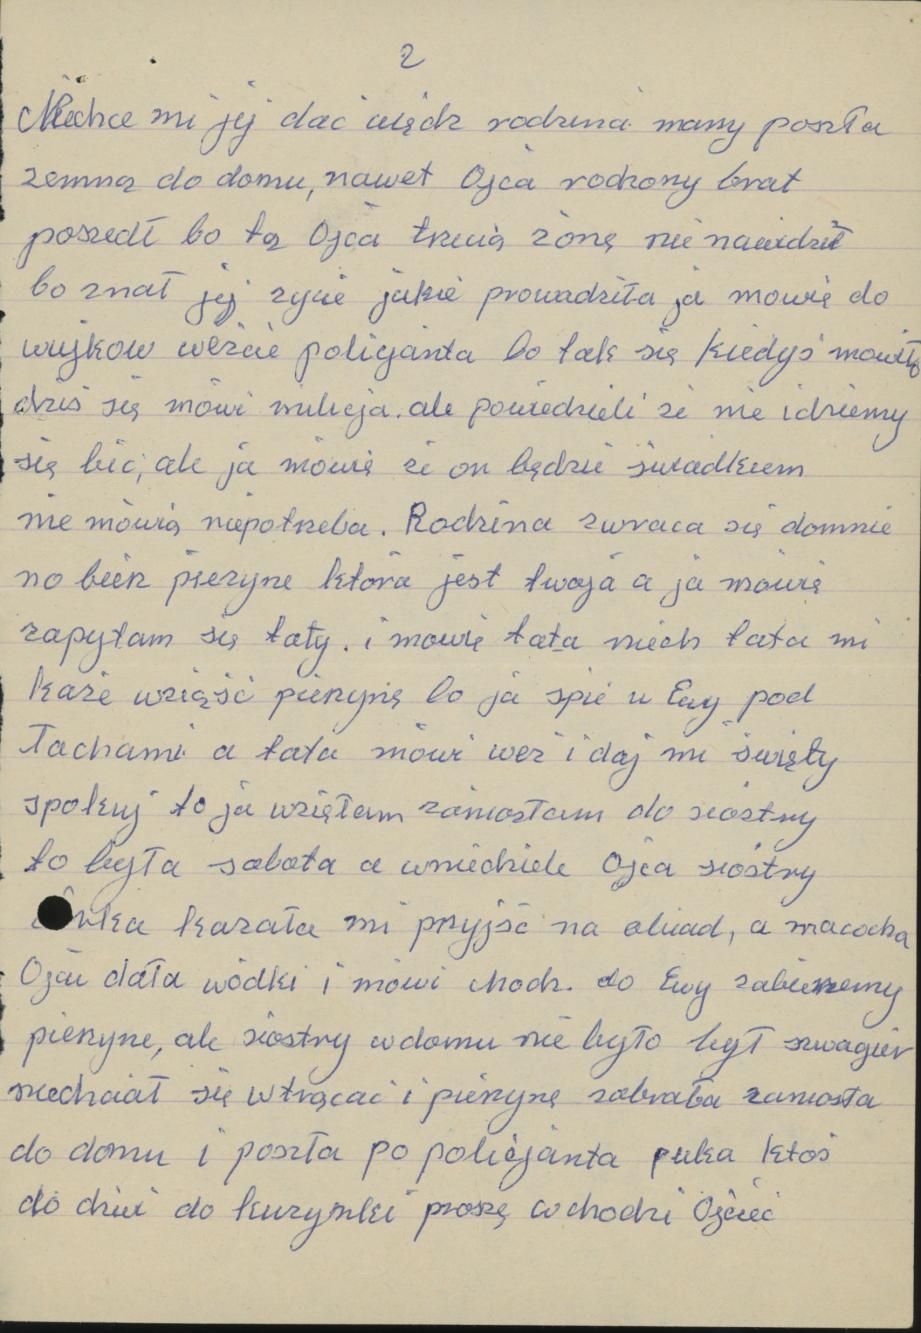 2
Niechce mi jej dać więdz rodzina mamy poszła
zemną do domu, nawet Ojca rodzony brat
poszedł bo tą Ojca trzecią żonę nie nawidził
bo znał jej zycie jakie prowadziła ja mowię do
wujkow weźcie policjanta bo tak się kiedyś mowiło
dziś się mówi milicja. ale powiedzieli że nie idziemy
się bić, ale ja mówię że on będzie świadkiem
nie mówią niepotrzeba. Rodzina zwraca się domnie
no bierz pierzyne ktora jest twoja a ja mówię
zapytam się taty. i mowię tata niech tata mi
każe wziąść pierzynę bo ja spie u Ewy pod
łachami a tata mówi weź i daj mi święty
spokuj to ja wziełam zaniosłam do siostry
to była sobota a wniedziele Ojca siostry
kazała mi przyjść na obiad, a macocha
Ojcu dała wódki i mówi chodz. do Ewy zabierzemy
pierzyne, ale siostry wdomu nie było był szwagier
niechciał się wtrącać i pierzynę zabrała zaniosła
do domu i poszła po policjanta puka ktoś
do dzwi do kuzynki proszę wchodzi Ojciec